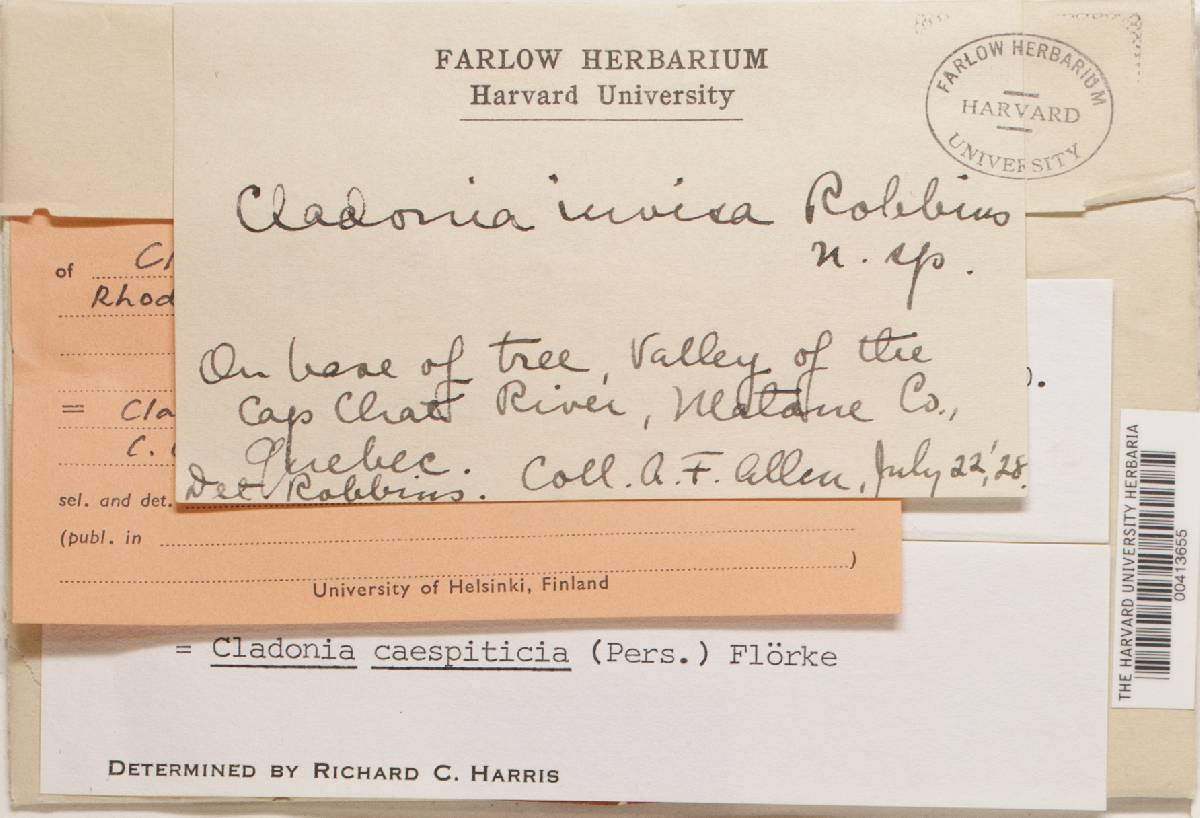 FARLOW HERBARIUM
Harvard University
FARLOW HERBARIUM
HARVARD
UNIVERSITY
Cladonia invisa Robbins
n. sp.
On base of tree, Valley of the
Cap Chat River, Matane Co.,
Quebec. Coll. A. F. Allen, July 22, '28.
Det. Robbins.
of Cl
Rhod
= Cla
C.
sel. and det.
(publ. in
)
University of Helsinki, Finland
).
= Cladonia caespiticia (Pers.) Flörke
DETERMINED BY RICHARD C. HARRIS
THE HARVARD UNIVERSITY HERBARIA
00413655